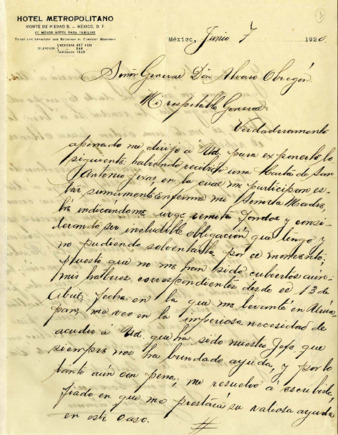 HOTEL METROPOLITANO
MONTE DE PIEDAD 8. - MEXICO, D. F.
EL MEJOR HOTEL PARA FAMILIAS
México, Junio 7 1920
Señor General Don Alvaro Obregón
Mi respetable General
Verdaderamente
apenado me dirijo a Ud. para exponerle lo
siguiente habiendo recibido una Carta de San
Antonio Texas en la cual me participan es-
tar sumamente enferma mi Señora Madre,
indicándome urge remita fondos y consi-
derando ser includible obligación que tengo y
no pudiendo solventarla por el momento,
puesto que no me han sido cubiertos aún
mis haberes correspondientes desde el 13 de
Abril, fecha en la que me levanté en
para, me veo en la imperiosa necesidad de
acudir a Ud. que ha sido nuestro Jefe que
siempre nos ha brindado ayuda, y por lo
tanto aún con pena, me resuelvo a escribirle,
fiado en que me prestará su valiosa ayuda
en este caso.